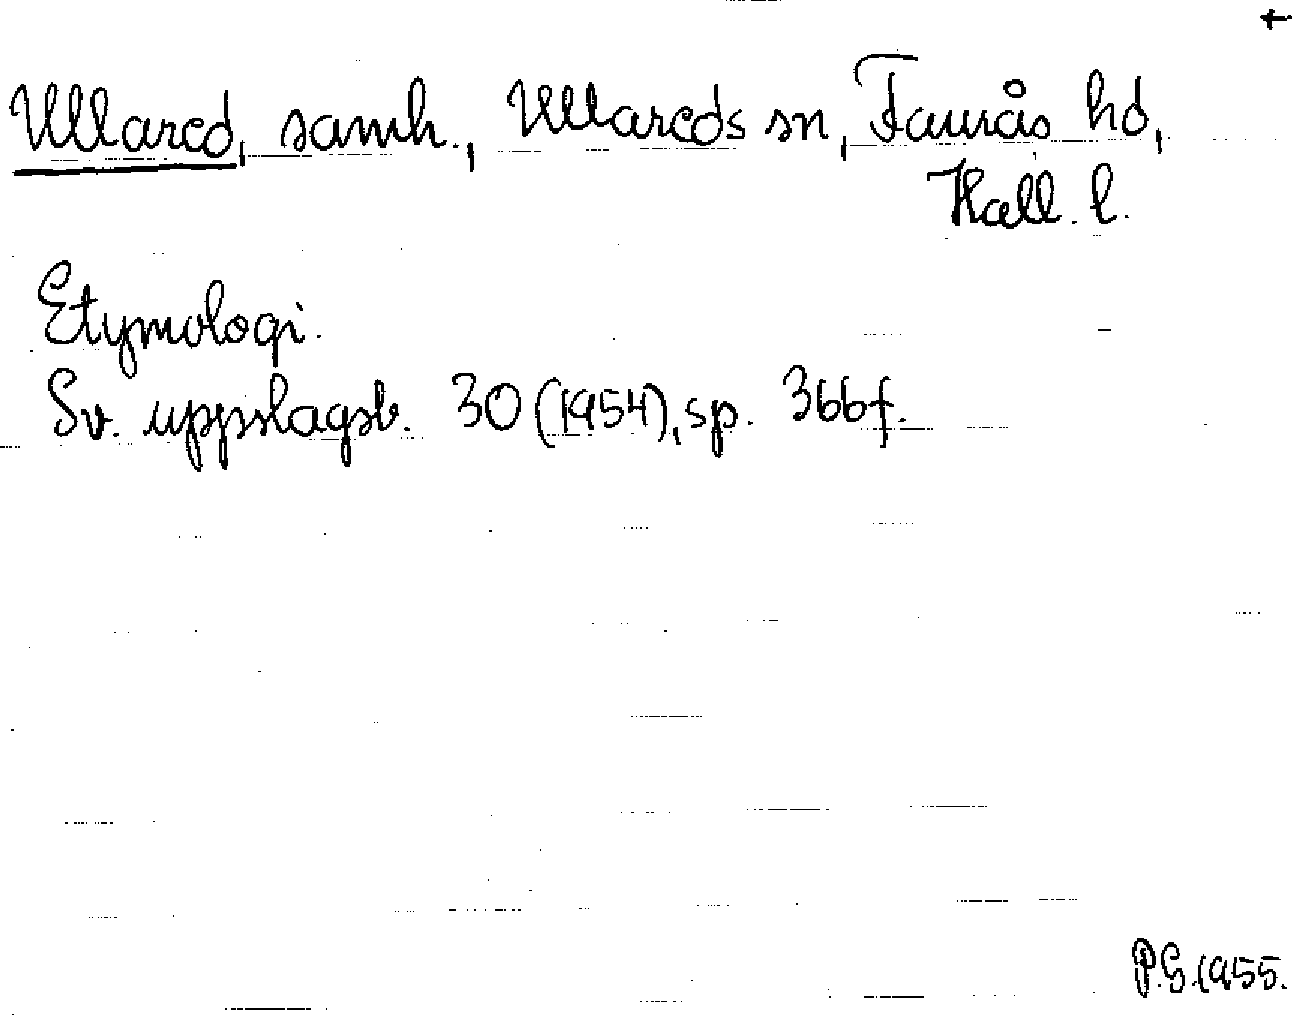 +
Ullared, samh., Ullareds sn, Faurås hd,
Hall. l.
Etymologi.
Sv. uppslagsb. 30 (1954), sp. 366f.
P.G. 1955.